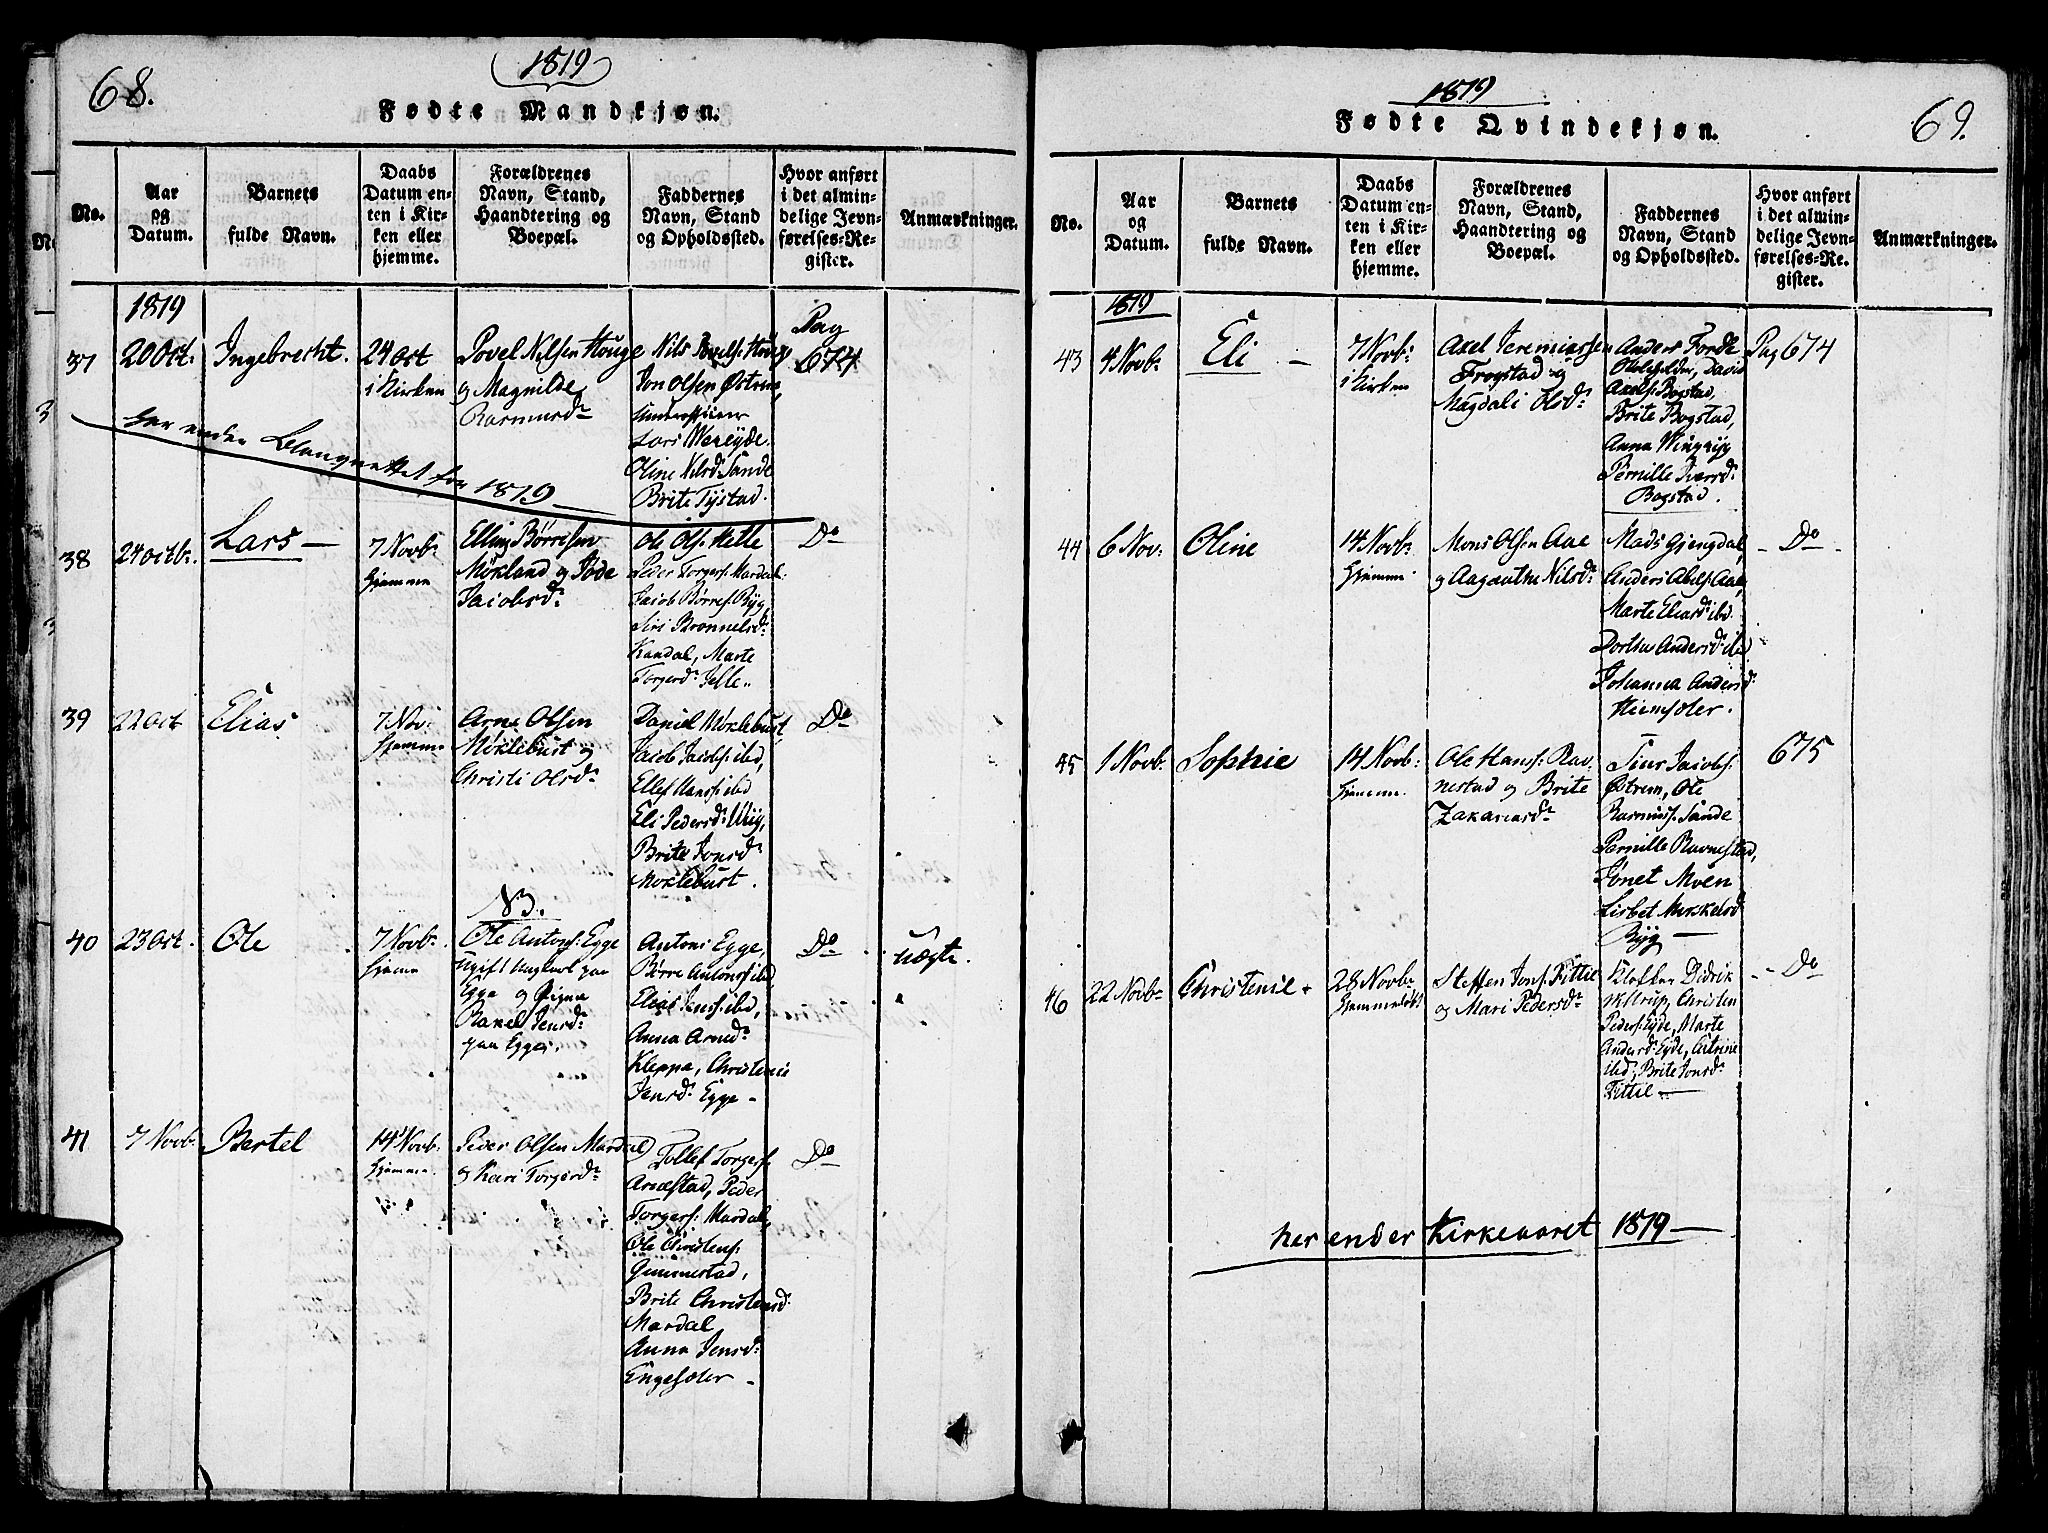 68.
1819
Fødte Mandkjøn.
No.
Aar
og
Datum.
Barnets
fulde Navn.
Daabs
Datum en-
ten i Kir-
ken eller
hjemme.
Forældrenes
Navn, Stand,
Haandtering og
Boepæl.
Faddernes
Navn, Stand
og Opholdssted.
Hvor anført
i det almin-
delige Jevn-
førelses-Re-
gister.
Anmærkninger.
1819
37
20 Oct.
Ingebrecht.
24 Oct
i Kirken
Povel Nilsen Houge
og Magnilde
Rasmusdr
Nils Povels: Houge
Jon Olsen Østrem,
Underofficeer
Lars Wereyde.
Oline Nilsd: Sande
Brite Tystad.
Pag
674
her ender Blanquettet for 1819
38
24 octbr.
Lars
7 Novbr
hjemme
Elling Børresen
Møkland og Jøde
Jacobsdr
Ole Ols: Helle
Peder Torgers: Mardal.
Jacob Børres: Byg,
Siri Brønnelsdr
Kandal, Marte
Torgersdr Jelle..
Do
39
22 Oct
Elias
7 Nov:
hjemme
Arne Olsen
Møklebust og
Christi Olsdr
Daniel Møklebust,
Jacob Jacobs: ibd,
Ellef Hans: ibd
Eli Pedersdr Myg,
Brite Jonsdr
Møklebust.
Do
40
23 Oct.
Ole
7 Novbr
hjemme
NB.
Ole Antons: Egge
Ugift Ungkarl paa
Egge og Pigen
Rakel Jensdr
paa Egge.
Antoni Egge,
Børre Antons: ibd
Elias Jens: ibd,
Anna Arnedr
Kleppa, Christense
Jensdr Egge -
Do
uægte.
41
7 Novb:
Bertel
14 Novb.
hjemme
Peder Olsen Mardal
og Kari Torgersdr
Tollef Torgers:
Arnestad, Peder
Torgers: Mardal,
Ole Christens:
Gimmestad,
Brite Christensd:
Mardal
Anna Jensd:
Engesæter -
Do
69.
1819
Fødte Qvindekjøn.
No.
Aar
og
Datum.
Barnets
fulde Navn.
Daabs
Datum en-
ten i Kir-
ken eller
hjemme.
Forældrenes
Navn, Stand,
Haandtering og
Boepæl.
Faddernes
Navn, Stand
og Opholdssted.
Hvor anført
i det almin-
delige Jevn-
førelses-Re-
gister.
Anmærkninger.
1819
43
4 Novbr
Eli
7 Novb:
i Kirken
Axel Jeremiassen
Frogstad og
Magdali Olsdr
Anders Forde
David
Axels: Bogstad,
Brite Bogstad,
Anna
Pernille Iversdr
Bogstad.
Pag 674
44
6 Nov:
Oline
14 Novbr
hjemme.
Mons Olsen Aae
og Aagaathe Nilsdr
Mads Gjengdal,
Anders Abels: Aae,
Marte Eliasd: ibd.
Dorthe Andersd: ibd
Johanna Andersd
Hiemsæter.
Do
45
1 Novb:
Sophie
14 Novb:
hjemme.
Ole Hans: Rav-
nestad og Brite
Zakariasdr
Siur Jacobs:
Østrem, Ole
Rasmus: Sande
Pernille Ravnestad,
Jonet Moen
Lisbet Mikkelsd
Byg
675
46
22 Novbr
Christense
28 Novbr
hjemmedøbt
Steffen Jons: Tittil
og Mari Pedersdr
Klokker Didrik
Christen
Peders: Eyde, Marte
Andersd: Eyde, Catrine
ibd, Brite Jonsdr
Tittil
Do
her ender Kirkeaaret 1819